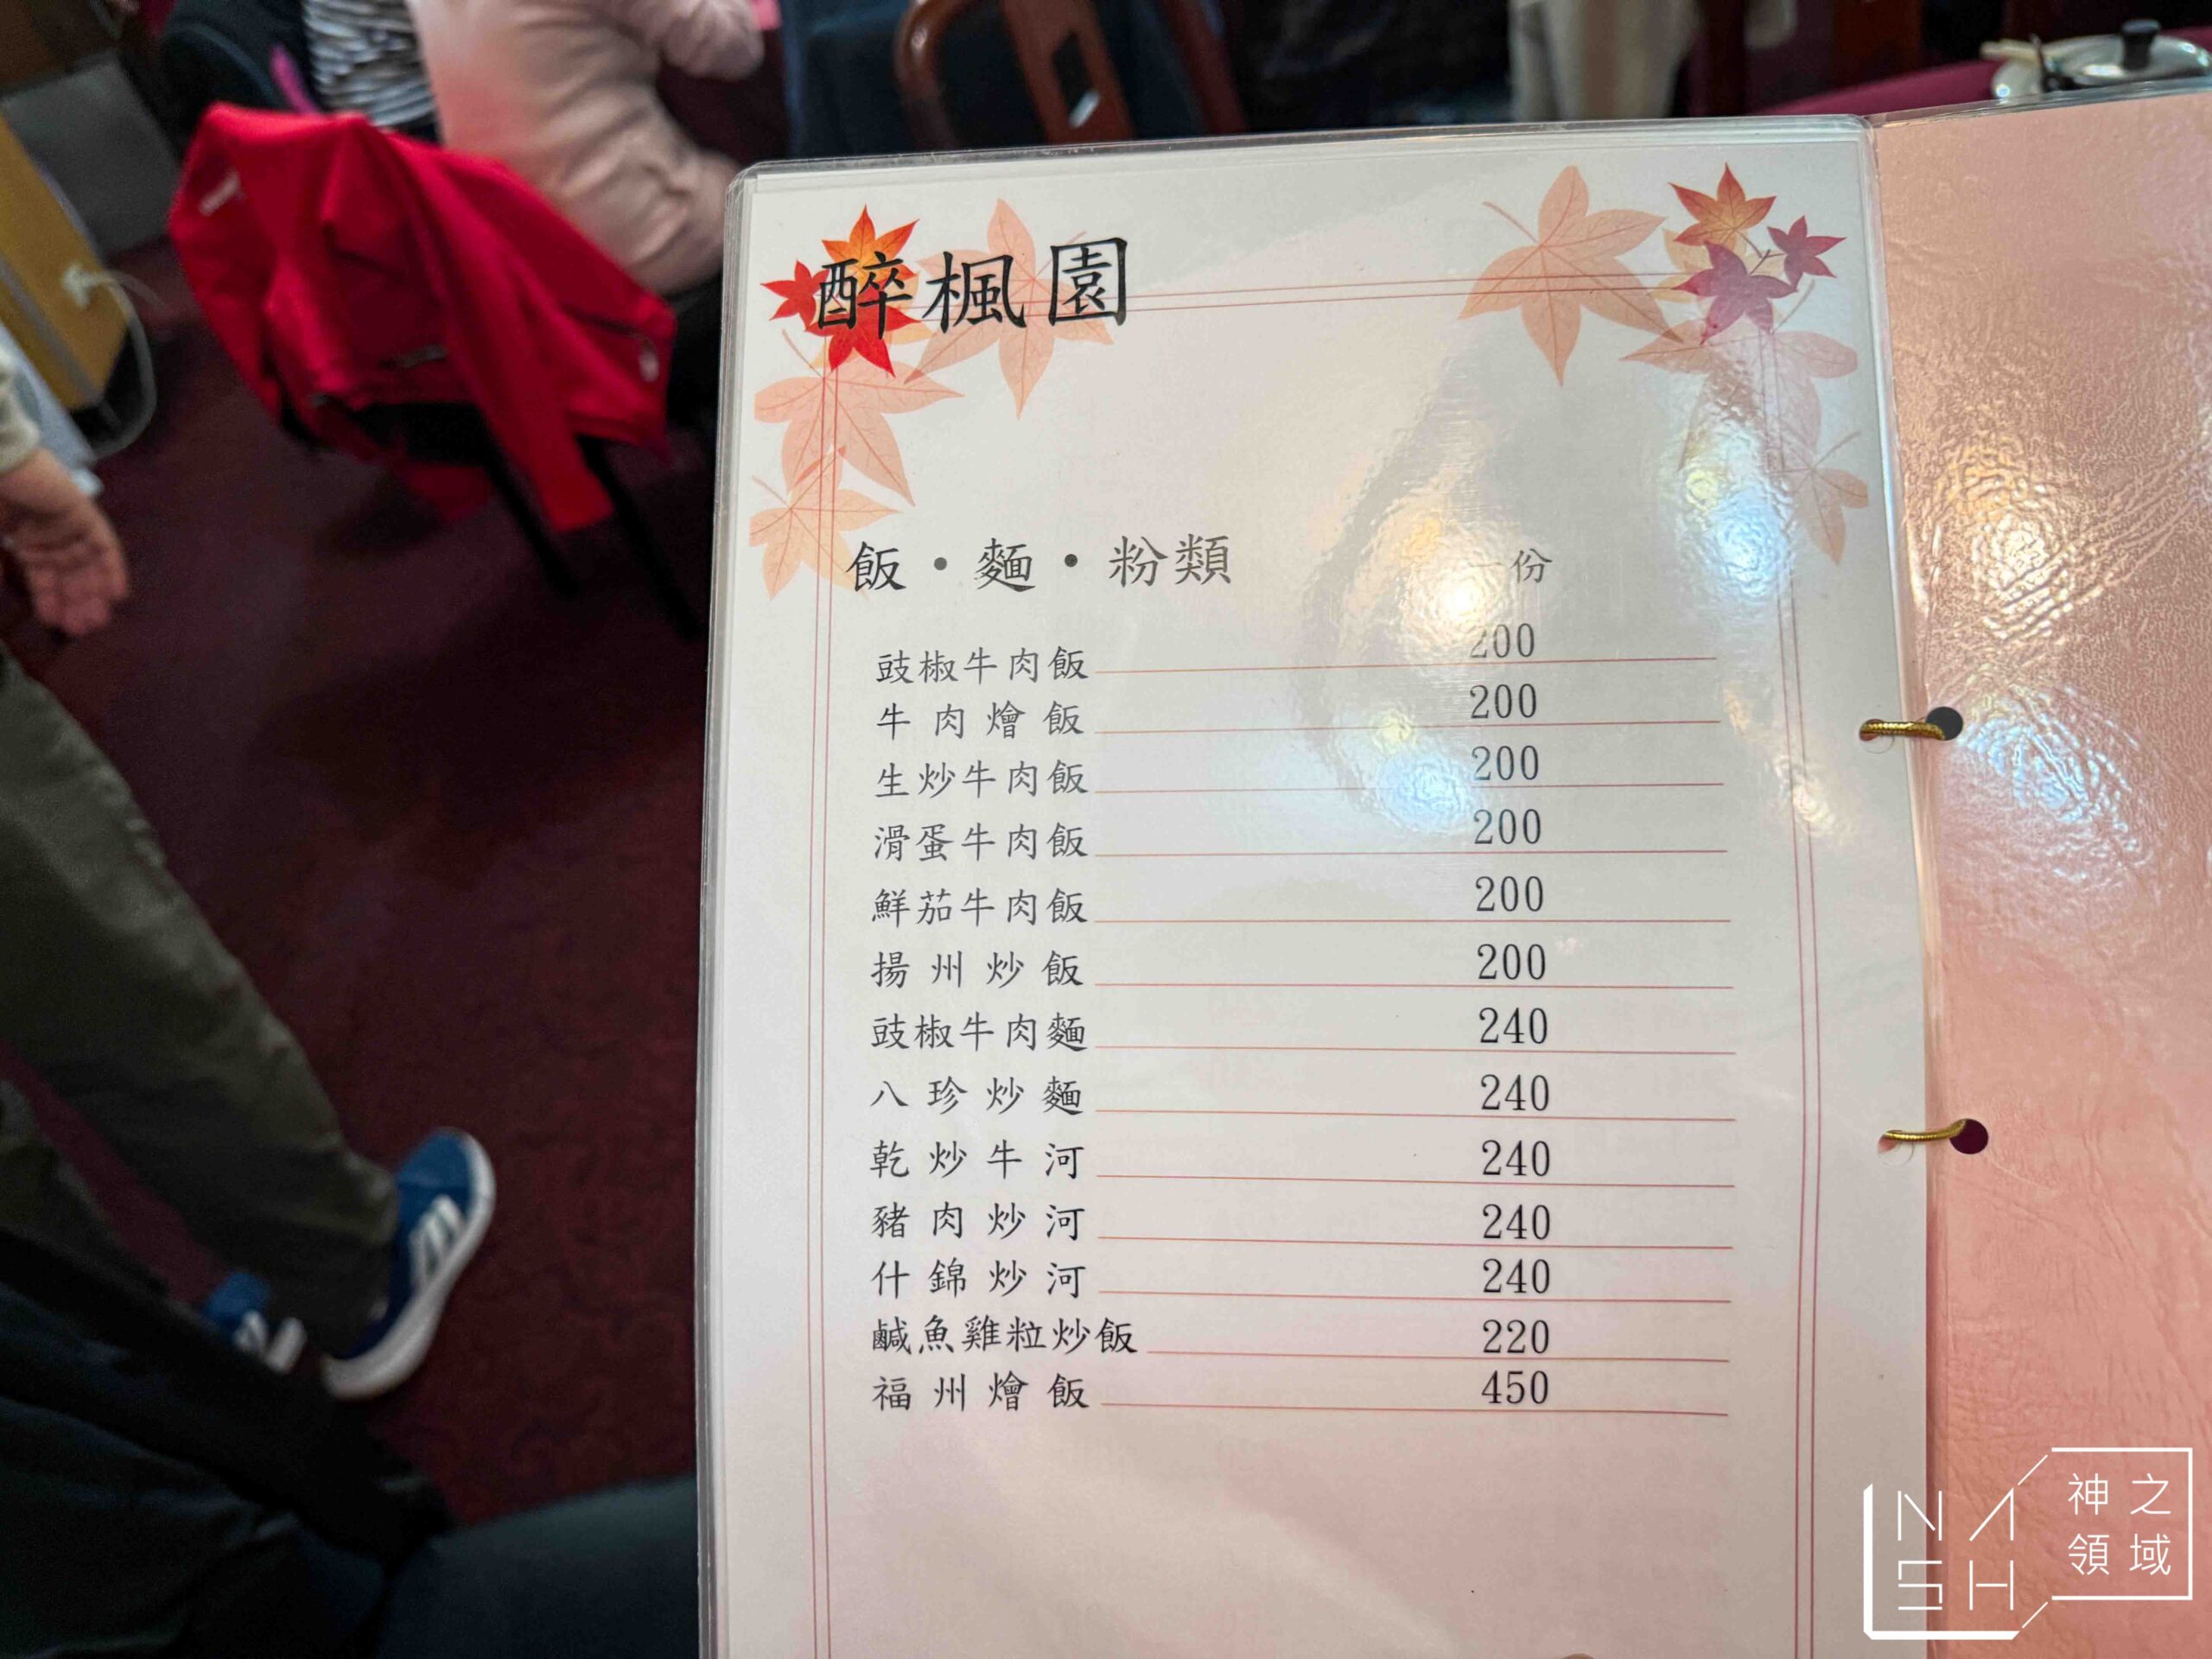 醉楓園
飯・麵・粉類 一份
豉椒牛肉飯 200
牛肉燴飯 200
生炒牛肉飯 200
滑蛋牛肉飯 200
鮮茄牛肉飯 200
揚州炒飯 200
豉椒牛肉麵 240
八珍炒麵 240
乾炒牛河 240
豬肉炒河 240
什錦炒河 240
鹹魚雞粒炒飯 220
福州燴飯 450
NASH
神之
領域